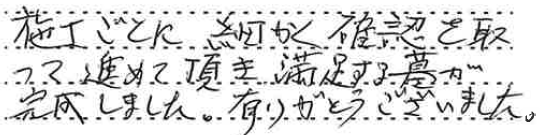 施工ごとに細かく確認を取
って進めて頂き満足する墓が
完成しました。有りがとうございました。